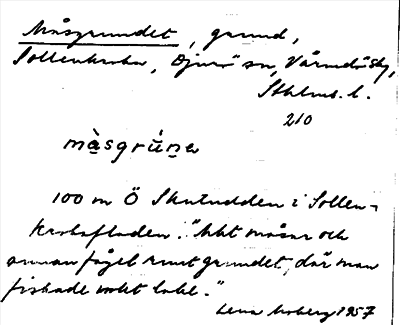 Måsgrundet, grund,
Sollenkroka, Djurö sn, Värmdö skg,
Sthlms. l.
210
mà̱sgrú̄ṉa
100 m Ö Skutudden i Sollen-
krokafladen. "Mkt måsar och
annan fågel runt grundet, där man
fiskade mket lake."
Lena Moberg 1957